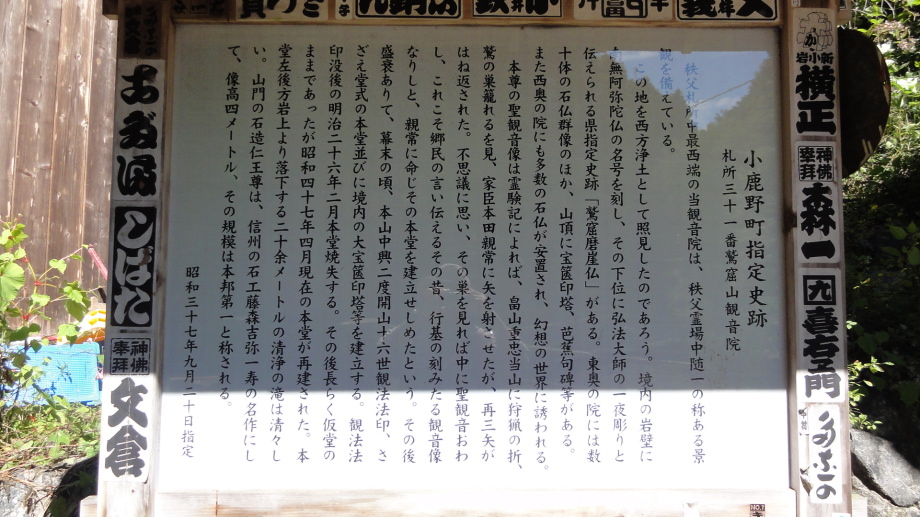 小鹿野町指定史跡
札所三十一番鷲窟山観音院
秩父札所中最西端の当観音院は、秩父霊場中随一の称ある景
観を備えている。
この地を西方浄土として照見したのであろう。境内の岩壁に
南無阿弥陀仏の名号を刻し、その下位に弘法大師の一夜彫りと
伝えられる県指定史跡「鷲窟磨崖仏」がある。東奥の院には数
十体の石仏群像のほか、山頂に宝篋印塔、芭蕉句碑等がある。
また西奥の院にも多数の石仏が安置され、幻想の世界に誘われる。
本尊の聖観音像は霊験記によれば、畠山重忠当山に狩猟の折、
鷲の巣籠れるを見、家臣本田親常に矢を射させたが、再三矢が
はね返された。不思議に思い、その巣を見れば中に聖観音おわ
し、これこそ郷民の言い伝えるその昔、行基の刻みたる観音像
なりしと、親常に命じその本堂を建立せしめたという。その後
盛衰ありて、幕末の頃、本山中興二度開山十六世観法法印、さ
ざえ堂式の本堂並びに境内の大宝篋印塔等を建立する。観法法
印没後の明治二十六年二月本堂焼失する。その後長らく仮堂の
ままであったが昭和四十七年四月現在の本堂が再建された。本
堂左後方岩上より落下する二十余メートルの清浄の滝は清々し
い。山門の石造仁王尊は、信州の石工藤森吉弥一寿の名作にし
て、像高四メートル、その規模は本邦第一と称される。
昭和三十七年九月二十日指定
新小岩
横正
神佛
奉拝
森一
喜左エ門
しばた
神佛
奉拝
文倉